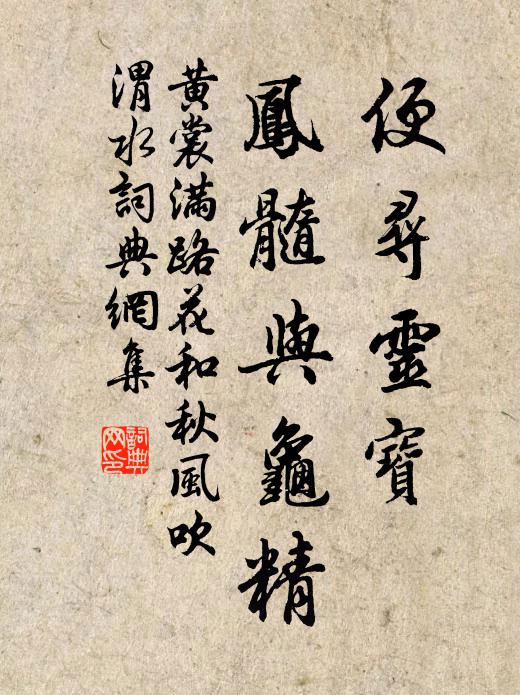 便尋靈寶
鳳髓與龜精
黃裳滿路花和秋風吹
渭水詞典網集
詞典
网印